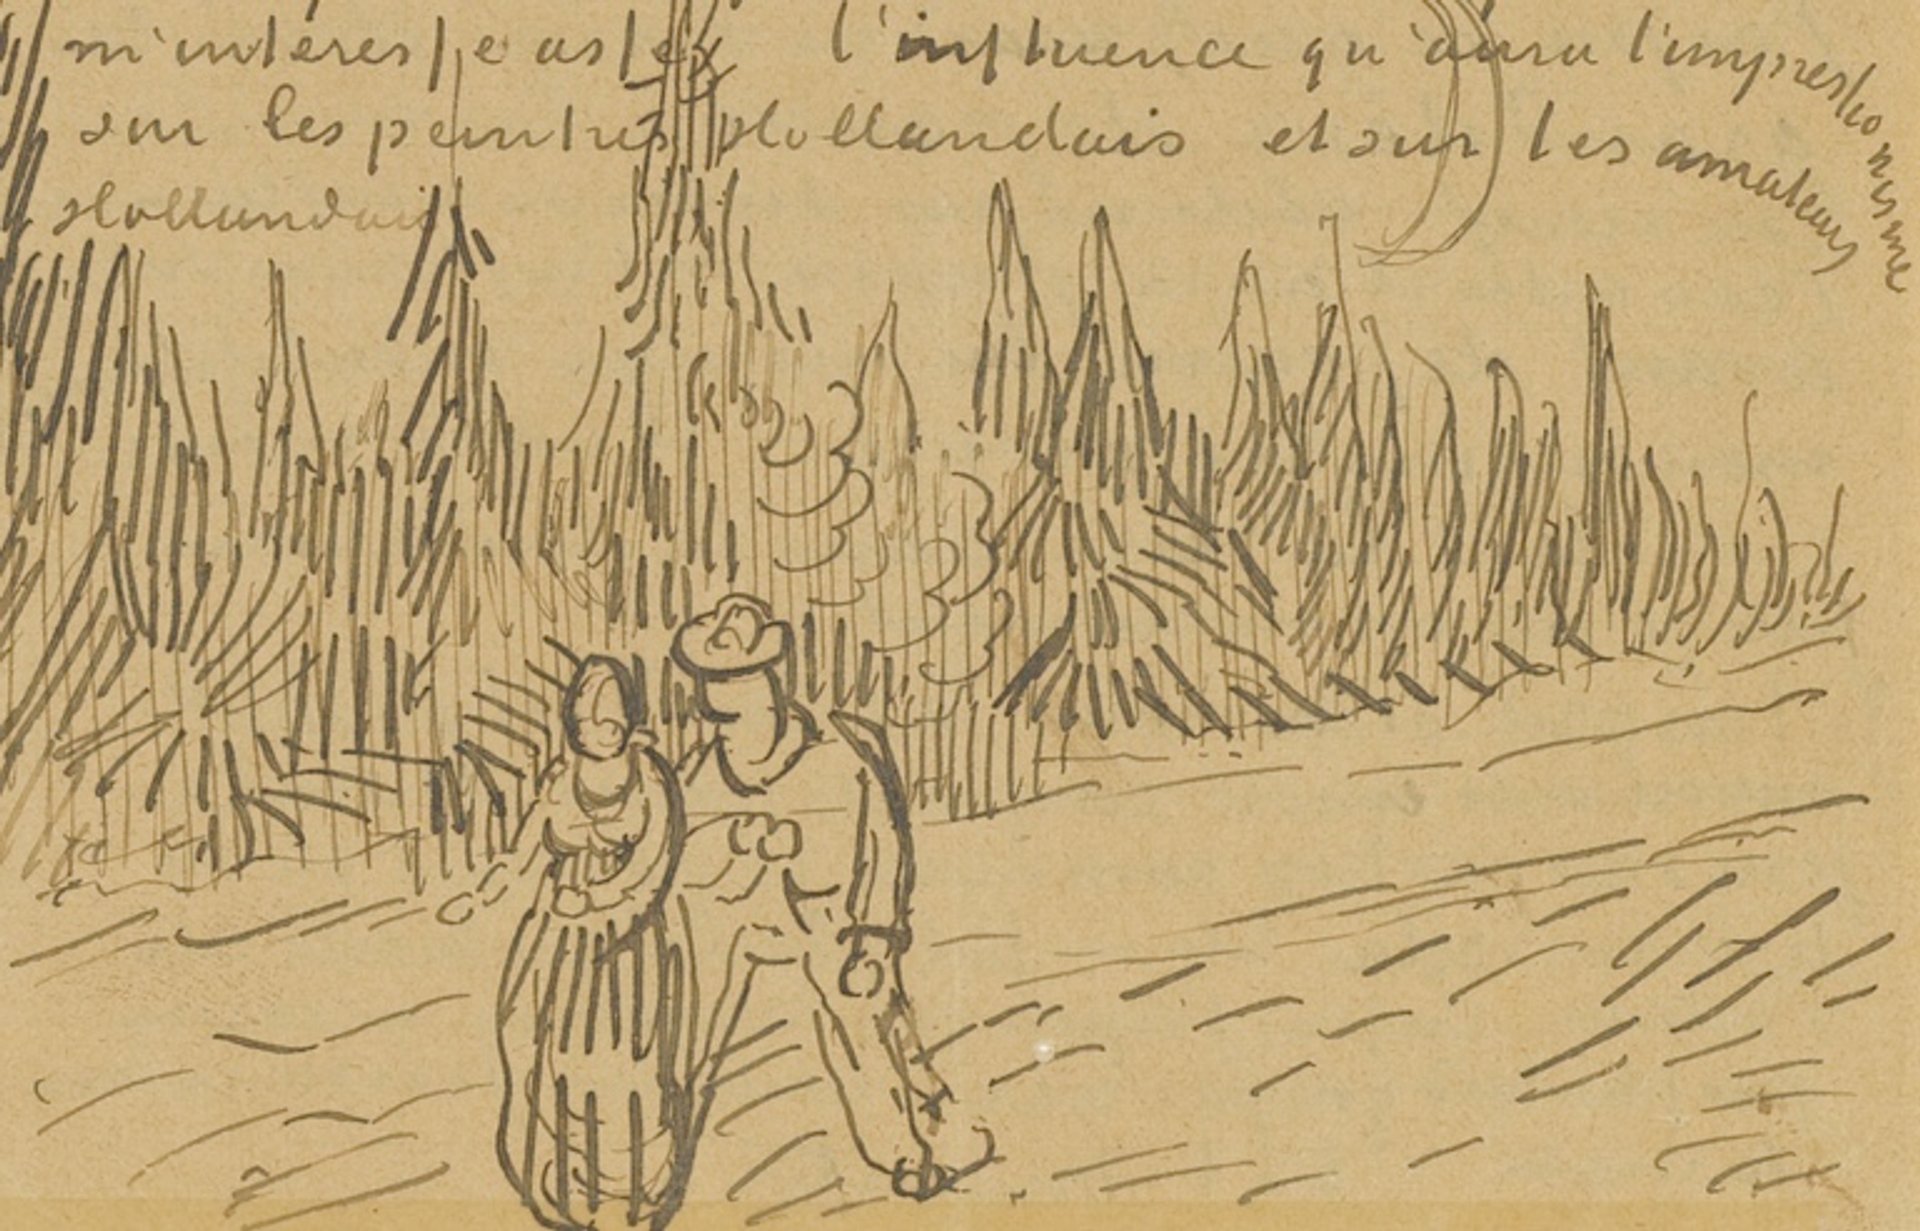 m'intéresse assez l'influence qu'aura l'impressionisme
sur les peintres Hollandais et sur les amateurs
Hollandais